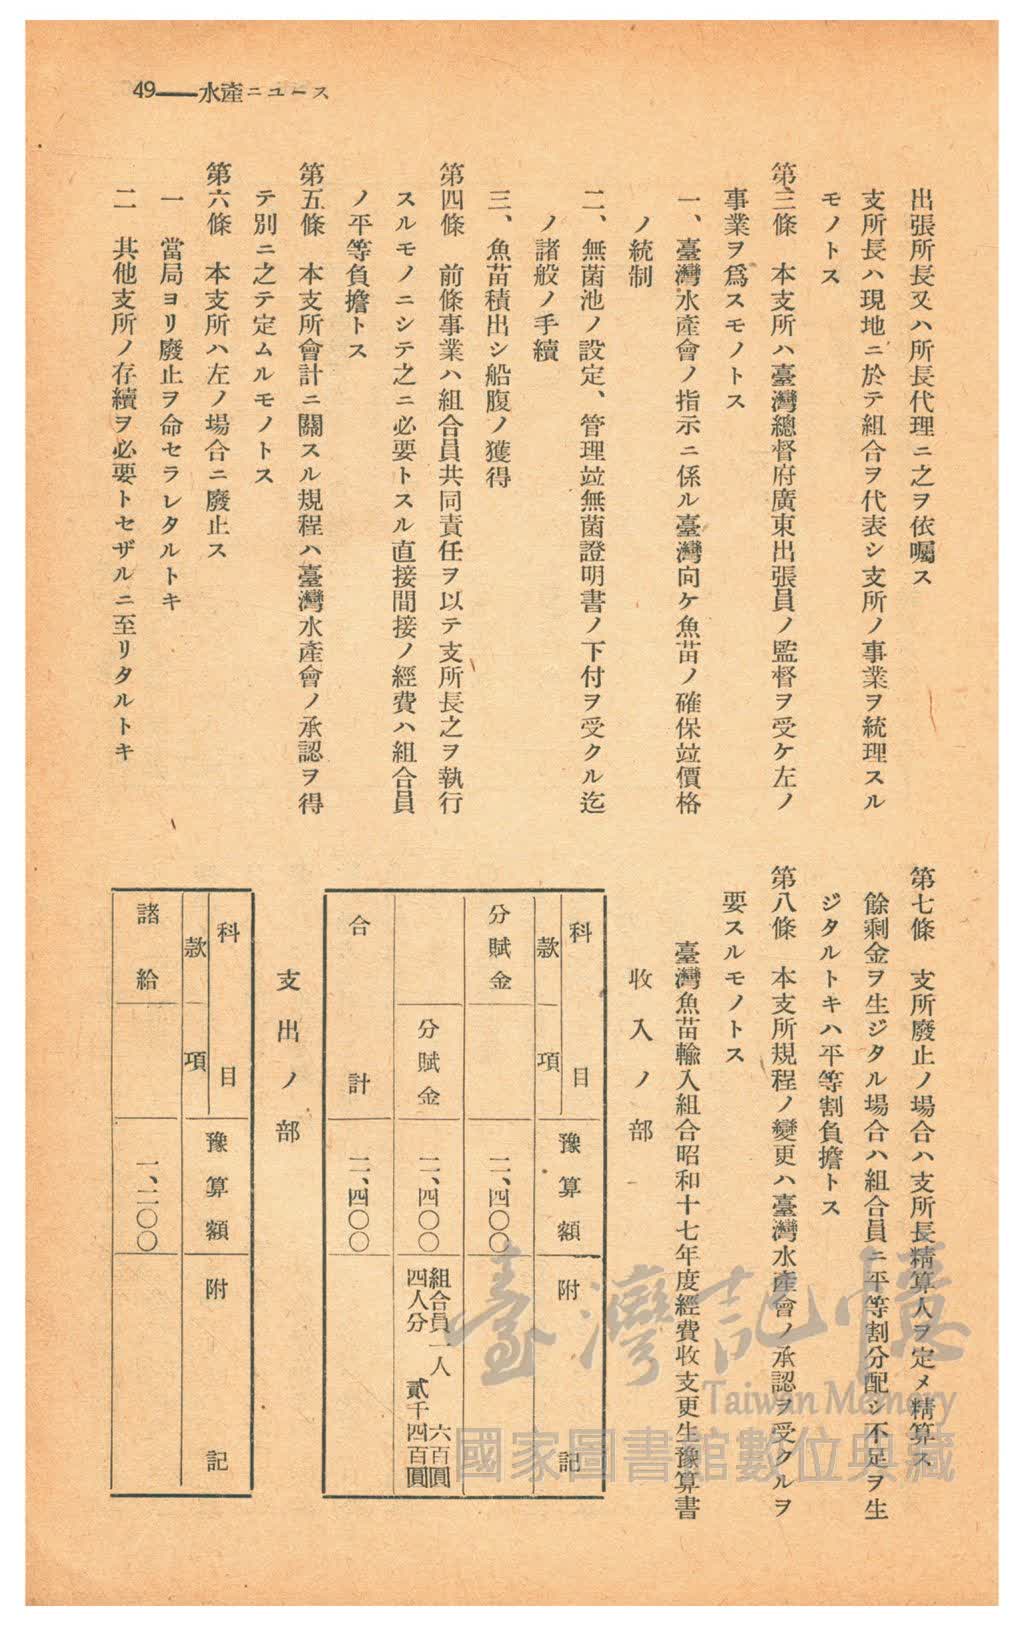 49——水產ニユース
出張所長又ハ所長代理ニ之ヲ依囑ス
支所長ハ現地ニ於テ組合ヲ代表シ支所ノ事業ヲ統理スル
モノトス
第三條　本支所ハ臺灣總督府廣東出張員ノ監督ヲ受ケ左ノ
事業ヲ爲スモノトス
一、臺灣水產會ノ指示ニ係ル臺灣向ケ魚苗ノ確保竝價格
ノ統制
二、無菌池ノ設定、管理竝無菌證明書ノ下付ヲ受クル迄
ノ諸般ノ手續
三、魚苗積出シ船腹ノ獲得
第四條　前條事業ハ組合員共同責任ヲ以テ支所長之ヲ執行
スルモノニシテ之ニ必要トスル直接間接ノ經費ハ組合員
ノ平等負擔トス
第五條　本支所會計ニ關スル規程ハ臺灣水產會ノ承認ヲ得
テ別ニ之テ定ムルモノトス
第六條　本支所ハ左ノ場合ニ廢止ス
一　當局ヨリ廢止ヲ命セラレタルトキ
二　其他支所ノ存續ヲ必要トセザルニ至リタルトキ
第七條　支所廢止ノ場合ハ支所長精算人ヲ定メ精算ス
餘剩金ヲ生ジタル場合ハ組合員ニ平等割分配シ不足ヲ生
ジタルトキハ平等割負擔トス
第八條　本支所規程ノ變更ハ臺灣水產會ノ承認ヲ受クルヲ
要スルモノトス
臺灣魚苗輸入組合昭和十七年度經費收支更生豫算書
收入ノ部
科目　豫算額　附記
款　項
分賦金　二、四〇〇
分賦金　二、四〇〇　組合員一人　六百圓
四人分　貳千四百圓
合計　二、四〇〇
支出ノ部
科目　豫算額　附記
款　項
諸給　一、二〇〇
臺灣記憶
Taiwan Memory
國家圖書館數位典藏